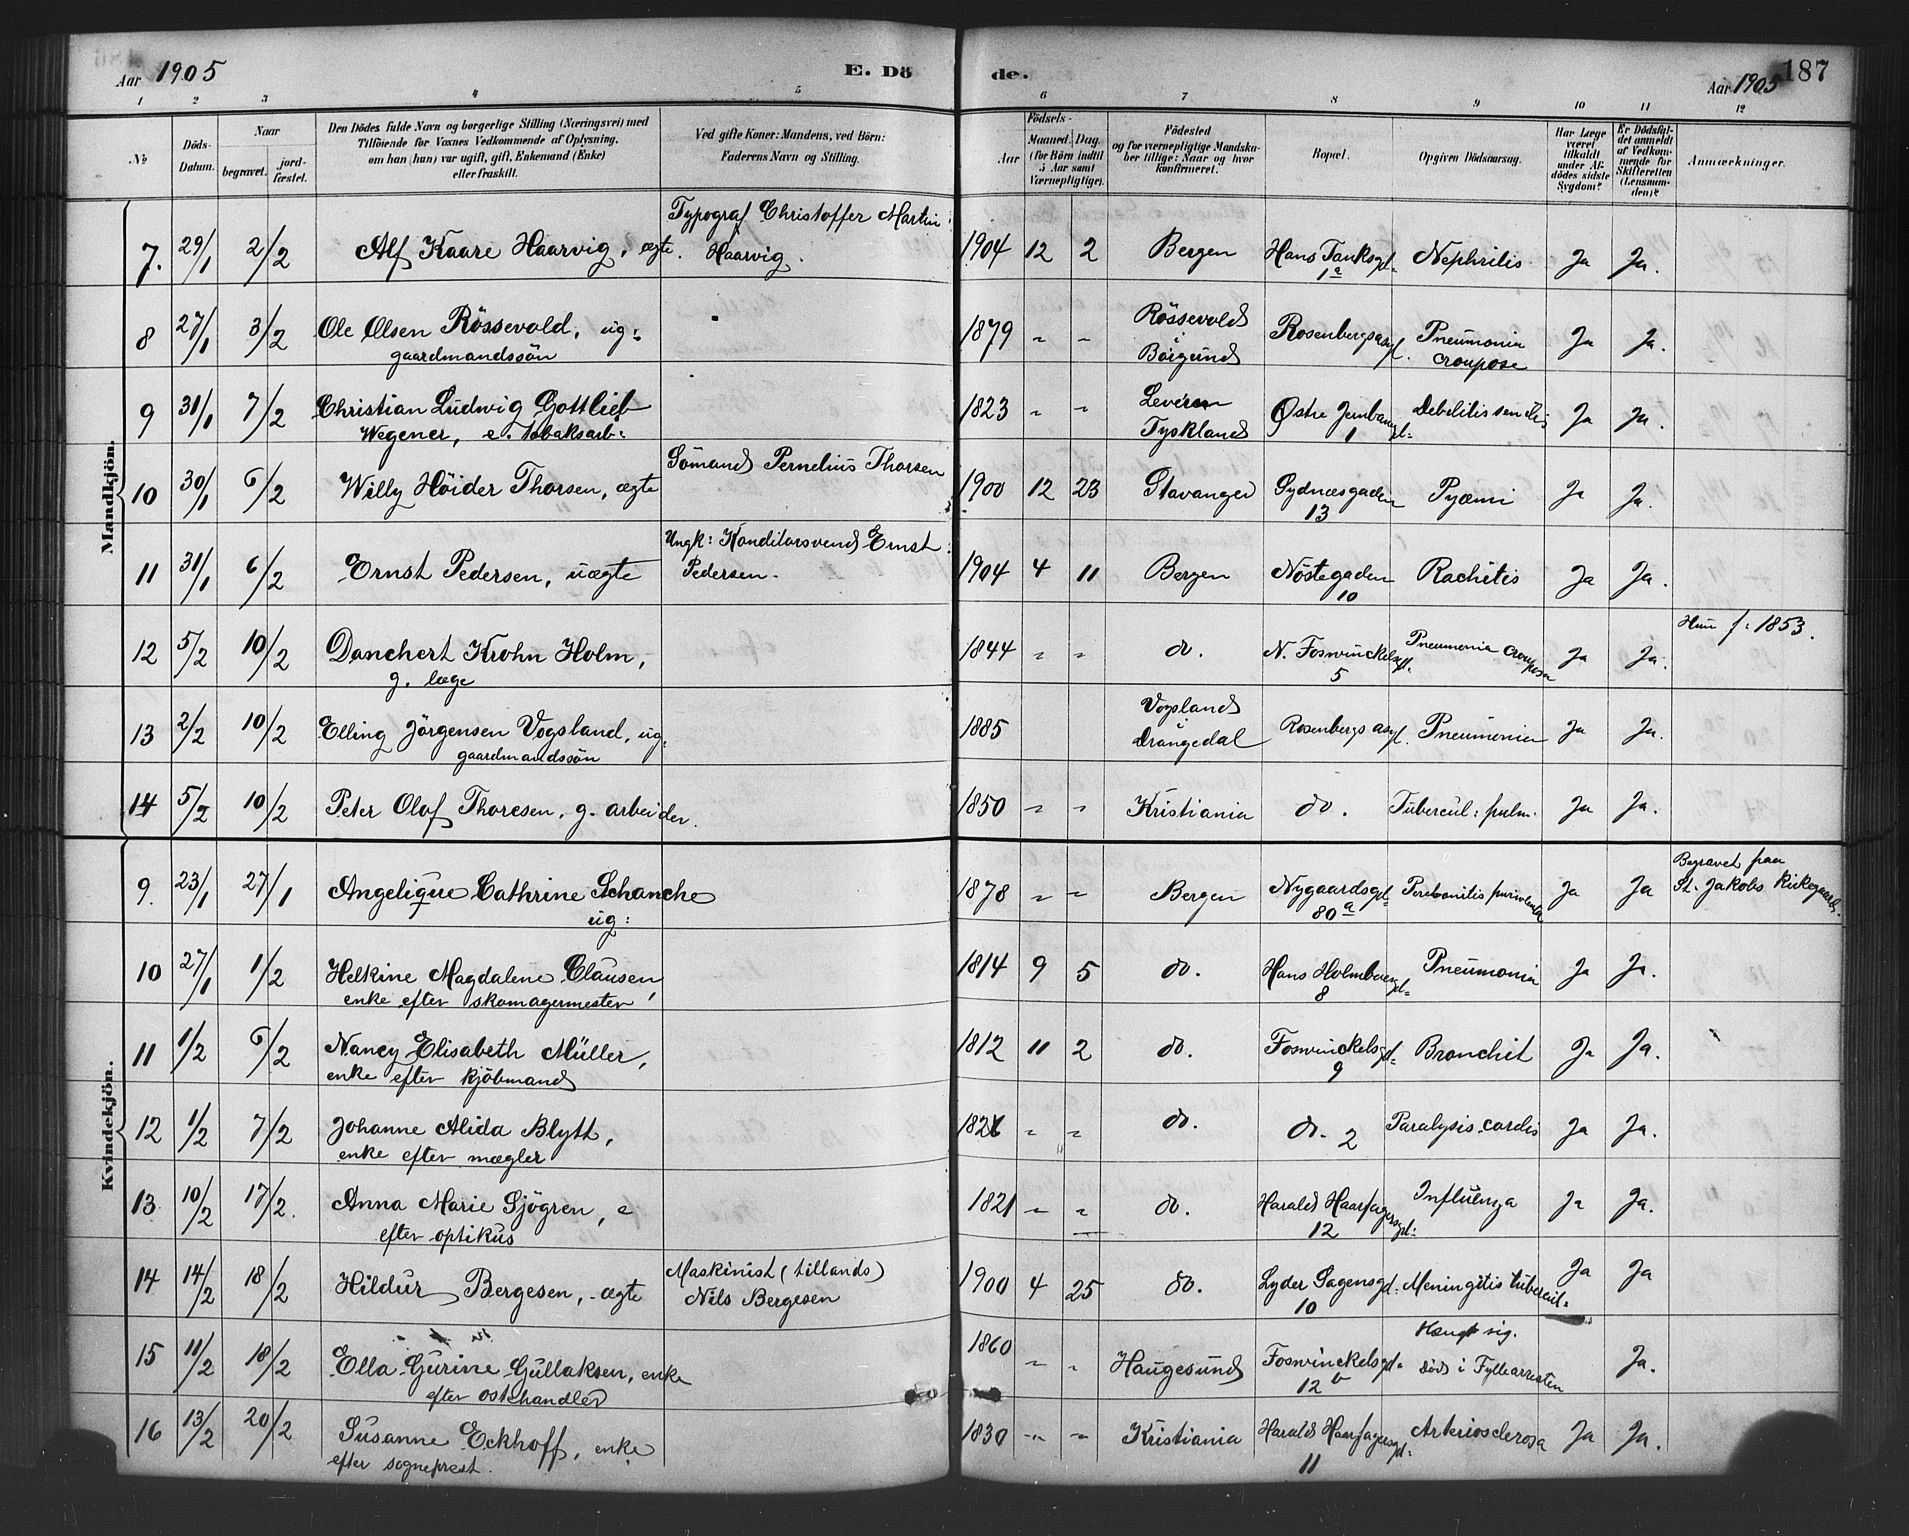 Aar 1905
E. Dö
de.
Aar 1905
187
1 2 3 4 5 6 7 8 9 10 11 12
№
Döds-Datum.
Naar
begravet. jord-fæstet.
Den Dödes fulde Navn og borgerlige Stilling (Næringsvei) med
Tilföiende for Voxnes Vedkommende af Oplysning,
om han (hun) var ugift, gift, Enkemand (Enke)
eller fraskilt.
Ved gifte Koner: Mandens, ved Börn:
Faderens Navn og Stilling.
Födsels-
Aar Maaned. Dag.
(for Börn indtil
5 Aar samt
Værnepligtige).
Födested
og for værnepligtige Mandska-
ber tillige: Naar og hvor
konfirmeret.
Bopæl.
Opgiven Dödsaarsag.
Har Læge
været
tilkaldt
under Af-
dödes sidste
Sygdom?
Er Dödsfal-
det anmeldt
af Vedkom-
mende for
Skifteretten
(Lensman-
den)?
Anmærkninger.
Mandkjön.
7. 29/1 2/2 Alf Kaare Haarvig, ægte. Typograf Christoffer Martin Haarvig. 1904 12 2 Bergen Hans Tanksgd. 1a Nephritis Ja Ja.
8 27/1 3/2 Ole Olsen Rössevold, ug: gaardmandssön 1879 " " Røssevold i Borgund Rosenbergsasyl. Pneumonia croupose Ja Ja.
9 31/1 7/2 Christian Ludwig Gottlieb Wegener, e. tobaksarb: 1823 " " Tyskland Østre Jernbanegd: 1 Debilitis senilis Ja Ja.
10 30/1 6/2 Willy Höider Thorsen, ægte Sömand Pernelius Thorsen 1900 12 23 Stavanger Sydnæsgaden 13 Pyæmi Ja Ja.
11 31/1 6/2 Ernst Pedersen, uægte Ungk: Konditorsvend Ernst Pedersen. 1904 4 11 Bergen Nöstegaden 10 Rachitis Ja Ja.
12 5/2 10/2 Danchert Krohn Holm, g. læge 1844 " " do. N. Foswinckelsgd. 5 Pneumonia crouposa Ja Ja. f. 1853.
13 2/2 10/2 Elling Jörgensen Vogsland, ug: gaardmandssön 1885 Vogsland i Drangedal Rosenbergs asyl. Pneumonia Ja Ja.
14 5/2 10/2 Peter Olaf Thoresen, g. arbeider. 1850 " " Kristiania do. Tubercul: pulm. Ja Ja.
Kvindekjön.
9. 23/1 27/1 Angelique Cathrine Schanche ug: 1878 " " Bergen Nygaardsgd: 80a Peretonitis purulenta Ja Ja Begravet paa St. Jakobs Kirkegaard.
10 27/1 1/2 Helkine Magdalene Clausen, enke efter skomagermester 1814 9 5 do. Hans Holmboesgd: 8 Pneumonia Ja Ja.
11 1/2 6/2 Nancy Elisabeth Müller, enke efter kjöbmand 1812 11 2 do. Foswinckelsgd: 9 Bronchit Ja Ja.
12 1/2 7/2 Johanne Alida Blytt, enke efter mægler " " do. do. 2 Paralysis cordis Ja Ja.
13 10/2 17/2. Anna Marie Sjögren, e efter optikus 1821 " " do. Harald Haarfagersgd: 12 Influenza Ja Ja.
14 14/2 18/2 Hildur Bergesen, ægte Maskinist (tillands) Nils Bergesen 1900 4 25 do. Lyder Sagensgd: 10 Meningitis tubercul: Ja Ja
15 11/2 18/2 Ella Gurine Gullaksen, enke efter ostehandler 1860 " " Haugesund Foswinckelsgd: 12b Hængt sig. död i Fyllearresten Ja.
16 13/2 20/2 Susanne Eckhoff, enke efter sogneprest. 1830 " " Kristiania Harald Haarfagersgd: 11 Arteriosclerosa Ja Ja.